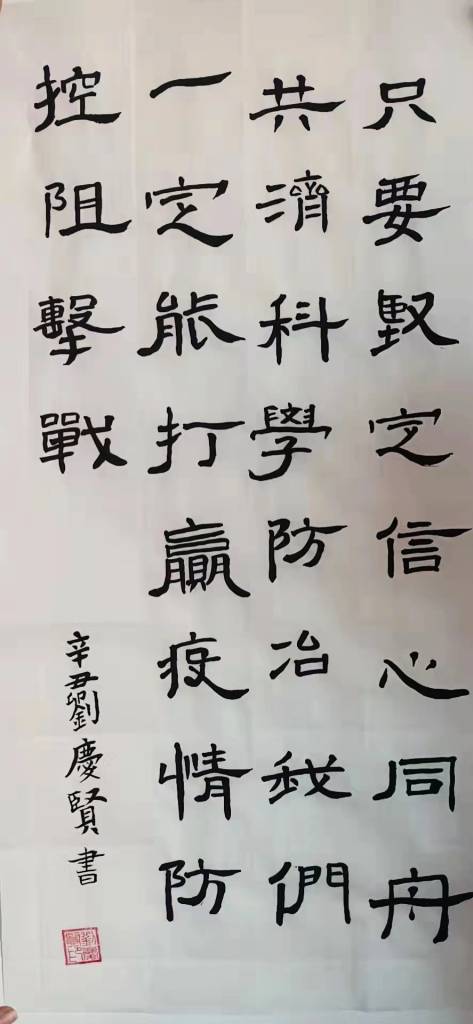 只要坚定信心同舟
共濟科學防治我們
一定能打贏疫情防
控阻擊戰
辛丑劉慶賢書